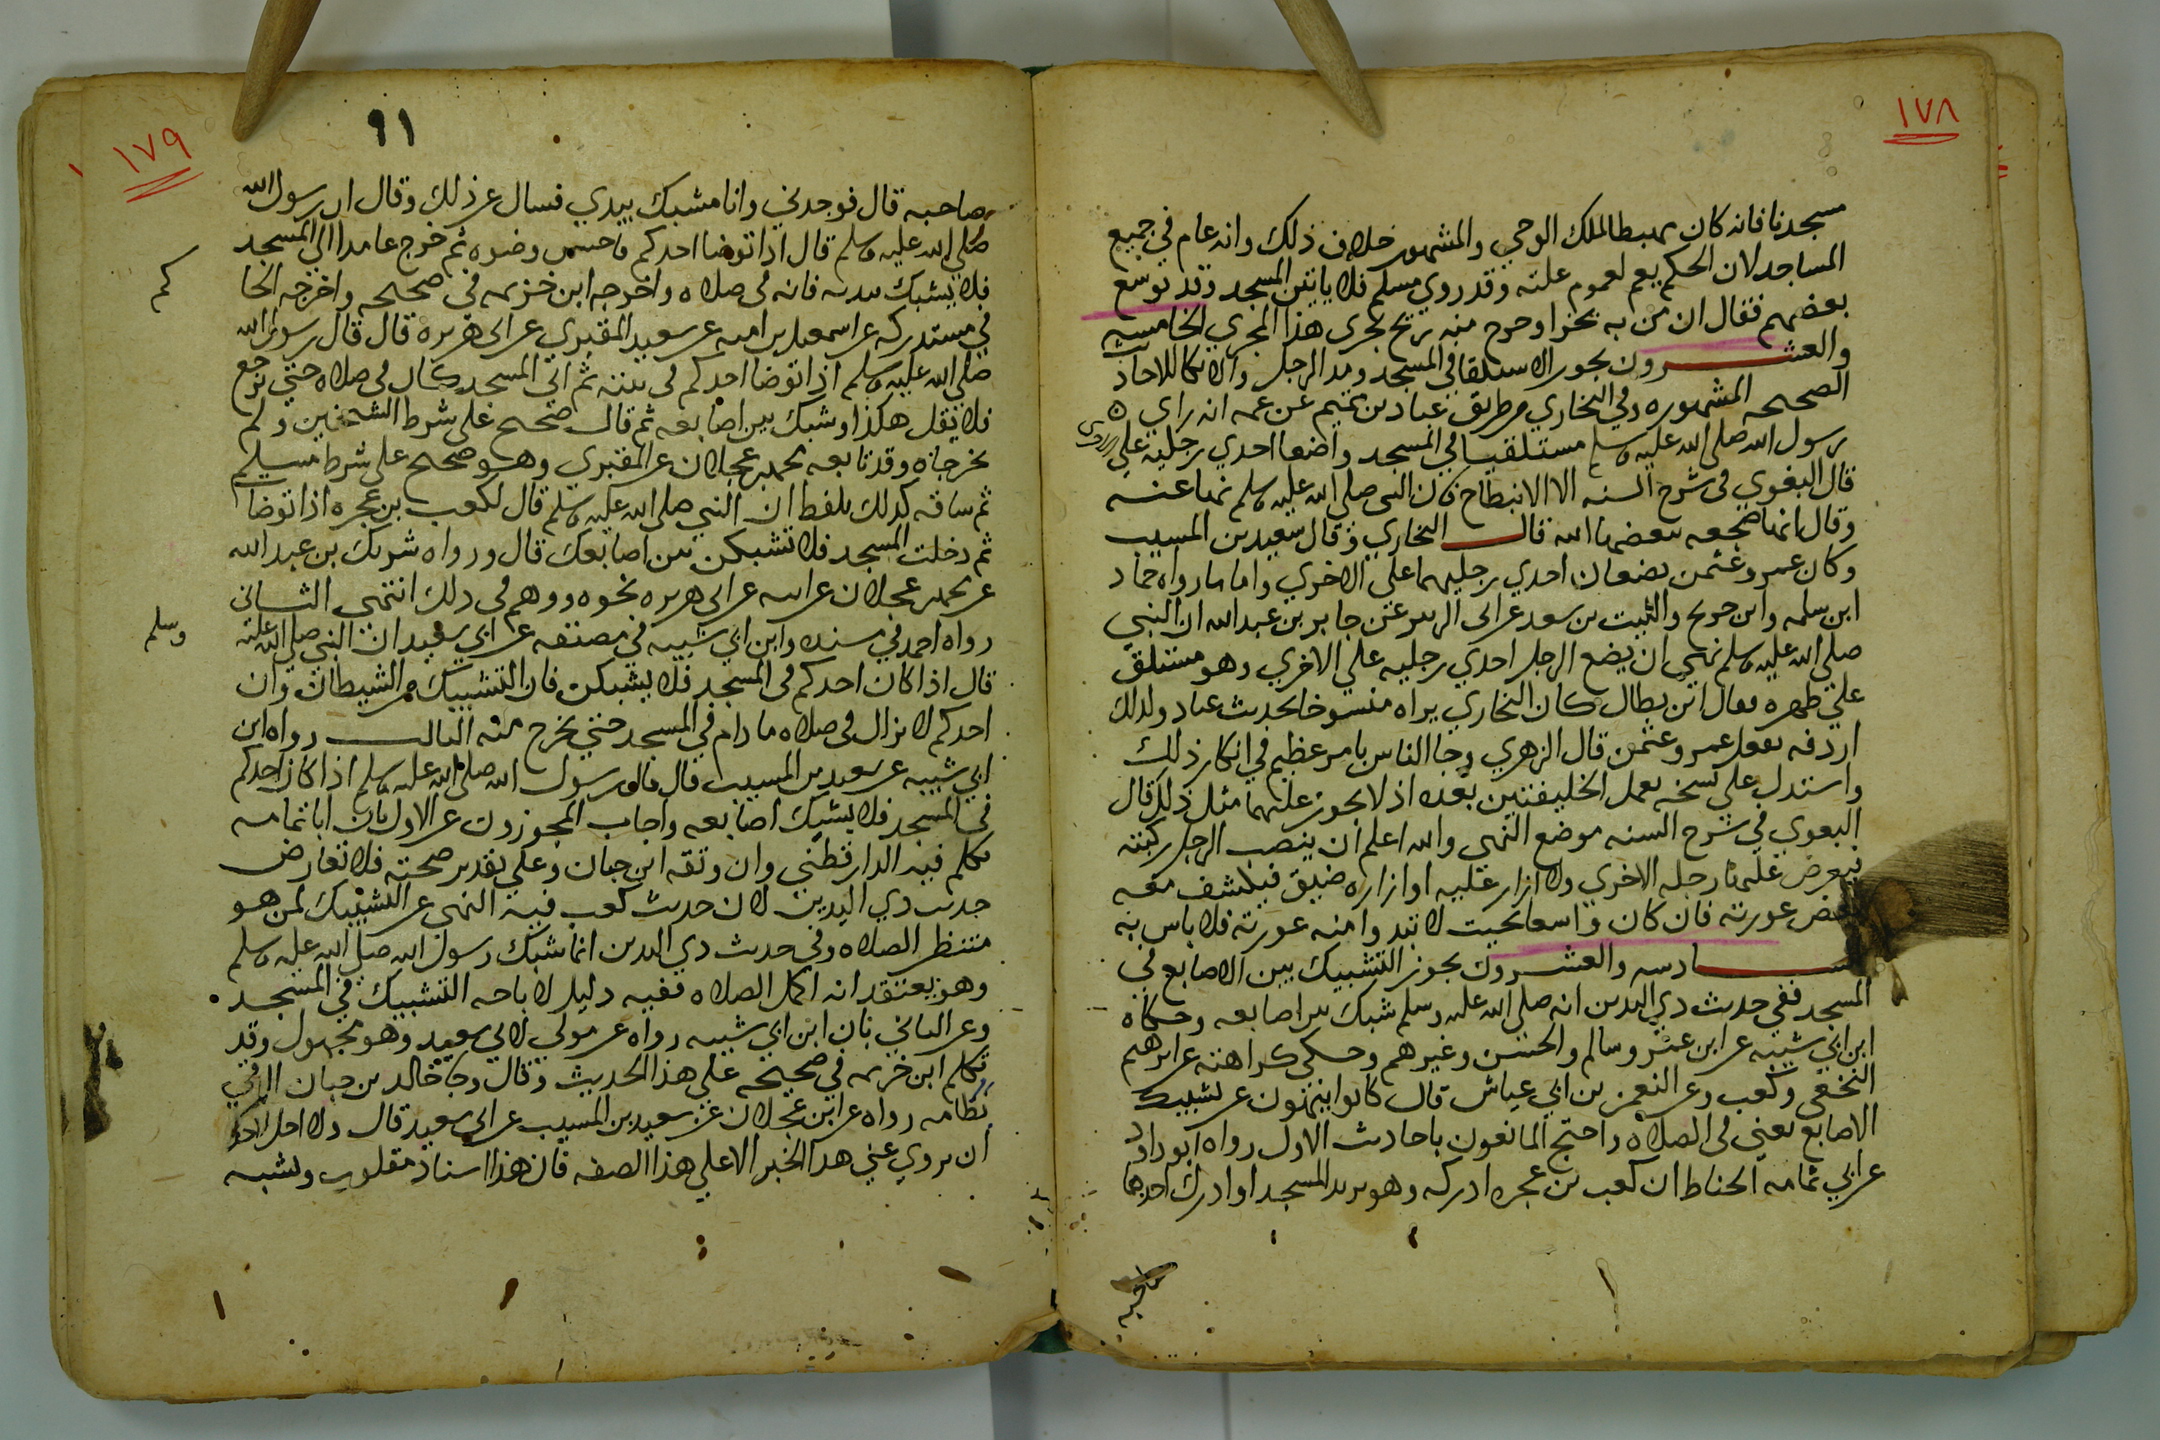 ١٧٨
مسجدنا فانه كان مهبطا لملك الوحي والمشهور خلاف ذلك وانه عام في جميع
المساجد لان الحكم يعم لعموم علته وقد روي مسلم فلا ياتين المسجد وقد توسع
بعضهم فقال ان من به بخر او جرح منه ريح يجرى هذا المجري الخامسه
والعشرون يجوز الاستلقا في المسجد ومد الرجل والاتكا للاحاد
الصحيحه المشهوره وفي البخاري من طريق عباد بن تميم عن عمه انه راي ه
رسول الله صلى الله عليه وسلم مستلقيا في المسجد واضعا احدي رجليه علي الاخرى
قال البغوي في شرح السنه الا الانبطاح فان النبي صلي الله عليه وسلم نها عنه
وقال انها ضجعه يبغضها الله قال البخاري وقال سعيد بن المسيب
وكان عمر وعثمن يضعان احدي رجليهما علي الاخري واما ما رواه حماد
ابن سلمه وابن جريج والليث بن سعد عن ابى الزبير عن جابر بن عبد الله ان النبي
صلي الله عليه وسلم نهي ان يضع الرجل احدي رجليه علي الاخري وهو مستلق
علي ظهره فقال ابن بطال كان البخاري يراه منسوخا بحديث عباد ولذلك
اردفه بفعل عمر وعثمن قال الزهري وجا الناس بامر عظيم في انكار ذلك
واستدل علي نسخه بعمل الخليفتين بعده اذ لا يجوز عليهما مثل ذلك قال
البغوي في شرح السنه موضع النهي والله اعلم ان ينصب الرجل ركبته
فيعرض عليها رجله الاخري ولا ازار عليه او ازاره ضيق فينكشف معه
بعض عورته فان كان واسعا بحيث لا تبدوا منه عورته فلا باس به
السادسه والعشرون يجوز التشبيك بين الاصابع في
المسجد ففي حديث ذي اليدين انه صلي الله عليه وسلم شبك بين اصابعه وحكاه
ابن ابي شيبه عن ابن عمر وسالم والحسن وغيرهم وحكى كراهته عن ابرهيم
النخعي وكعب وعن النعمن بن ابي عياش قال كانوا ينهون عن تشبيك
الاصابع يعني في الصلاه واحتج المانعون باحاديث الاول رواه ابو داود
عن ابي ثمامه الحناط ان كعب بن عجره ادركه وهو يريد المسجد او ادرك احدهما
صاحبه
١٧٩
٩١
صاحبه قال فوجدني وانا مشبك بيدي فسال عن ذلك وقال ان رسول الله
صلي الله عليه وسلم قال اذا توضا احدكم فاحسن وضوه ثم خرج عامدا الي المسجد
فلا يشبك يديه فانه في صلاه واخرجه ابن خزيمه في صحيحه واخرجه الحا
كم
في مستدركه عن اسمعيل بن اميه عن سعيد المقبري عن ابى هريره قال قال رسول الله
صلي الله عليه وسلم اذا توضا احدكم في بيته ثم اتي المسجد كان في صلاه حتي يرجع
فلا يقل هكذا وشبك بين اصابعه ثم قال صحيح علي شرط الشيخين ولم
يخرجاه وقد تابعه محمد بن عجلان عن المقبري وهو صحيح علي شرط مسلم
ثم ساقه كذلك بلفظ ان النبي صلي الله عليه وسلم قال لكعب بن عجره اذا توضات
ثم دخلت المسجد فلا تشبكن بين اصابعك قال ورواه شريك بن عبد الله
عن محمد بن عجلان عن ابيه عن ابي هريره نحوه ووهم في ذلك انتهي الثاني
رواه احمد في مسنده وابن ابي شيبه في مصنفه عن ابي سعيد ان النبي صلي الله عليه
وسلم
قال اذا كان احدكم في المسجد فلا يشبكن فان التشبيك من الشيطان وان
احدكم لا يزال في صلاه ما دام في المسجد حتي يخرج منه الثالث رواه ابن
ابي شيبه عن سعيد بن المسيب قال قال رسول الله صلي الله عليه وسلم اذا كان احدكم
في المسجد فلا يشبك اصابعه واجاب المجوزون عن الاول بان ابا ثمامه
تكلم فيه الدارقطني وان وثقه ابن حبان وعلي تقدير صحته فلا تعارض
حديث ذي اليدين لان حديث كعب فيه النهي عن التشبيك لمن هو
منتظر الصلاه وفي حديث ذي اليدين انما شبك رسول الله صلي الله عليه وسلم
وهو يعتقد انه اكمل الصلاه ففيه دليل لاباحه التشبيك في المسجد
وعن الثاني بان ابن ابي شيبه رواه عن مولي لابي سعيد وهو مجهول وقد
تكلم ابن خزيمه في صحيحه علي هذا الحديث وقال وجا خالد بن حيان الرقي
بطامه رواه عن ابن عجلان عن سعيد بن المسيب عن ابي سعيد قال ولا احل لاحد
ان يروي عني هذا الخبر الا علي هذا الصفه فان هذا اسناد مقلوب ويشبه